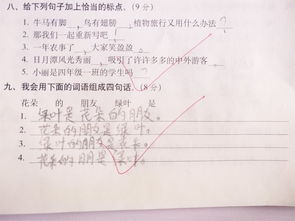 八、给下列句子加上恰当的标点。(9分)
1. 牛马有脚 , 鸟有翅膀 , 植物旅行又用什么办法 ?
2. 那我们一起重新写吧 !
3. 一年农事了 , 大家笑盈盈
4. 日月潭风光秀丽 , 吸引了许许多多的中外游客
5. 小丽是四年级一班的学生吗 ?
九、我会用下面的词语组成四句话。(8分)
花朵 的 朋友 绿叶 是
1. 绿叶是花朵的朋友。
2. 花朵的朋友是绿叶。
3. 绿叶的朋友是花朵。
4. 花朵的朋是绿叶。